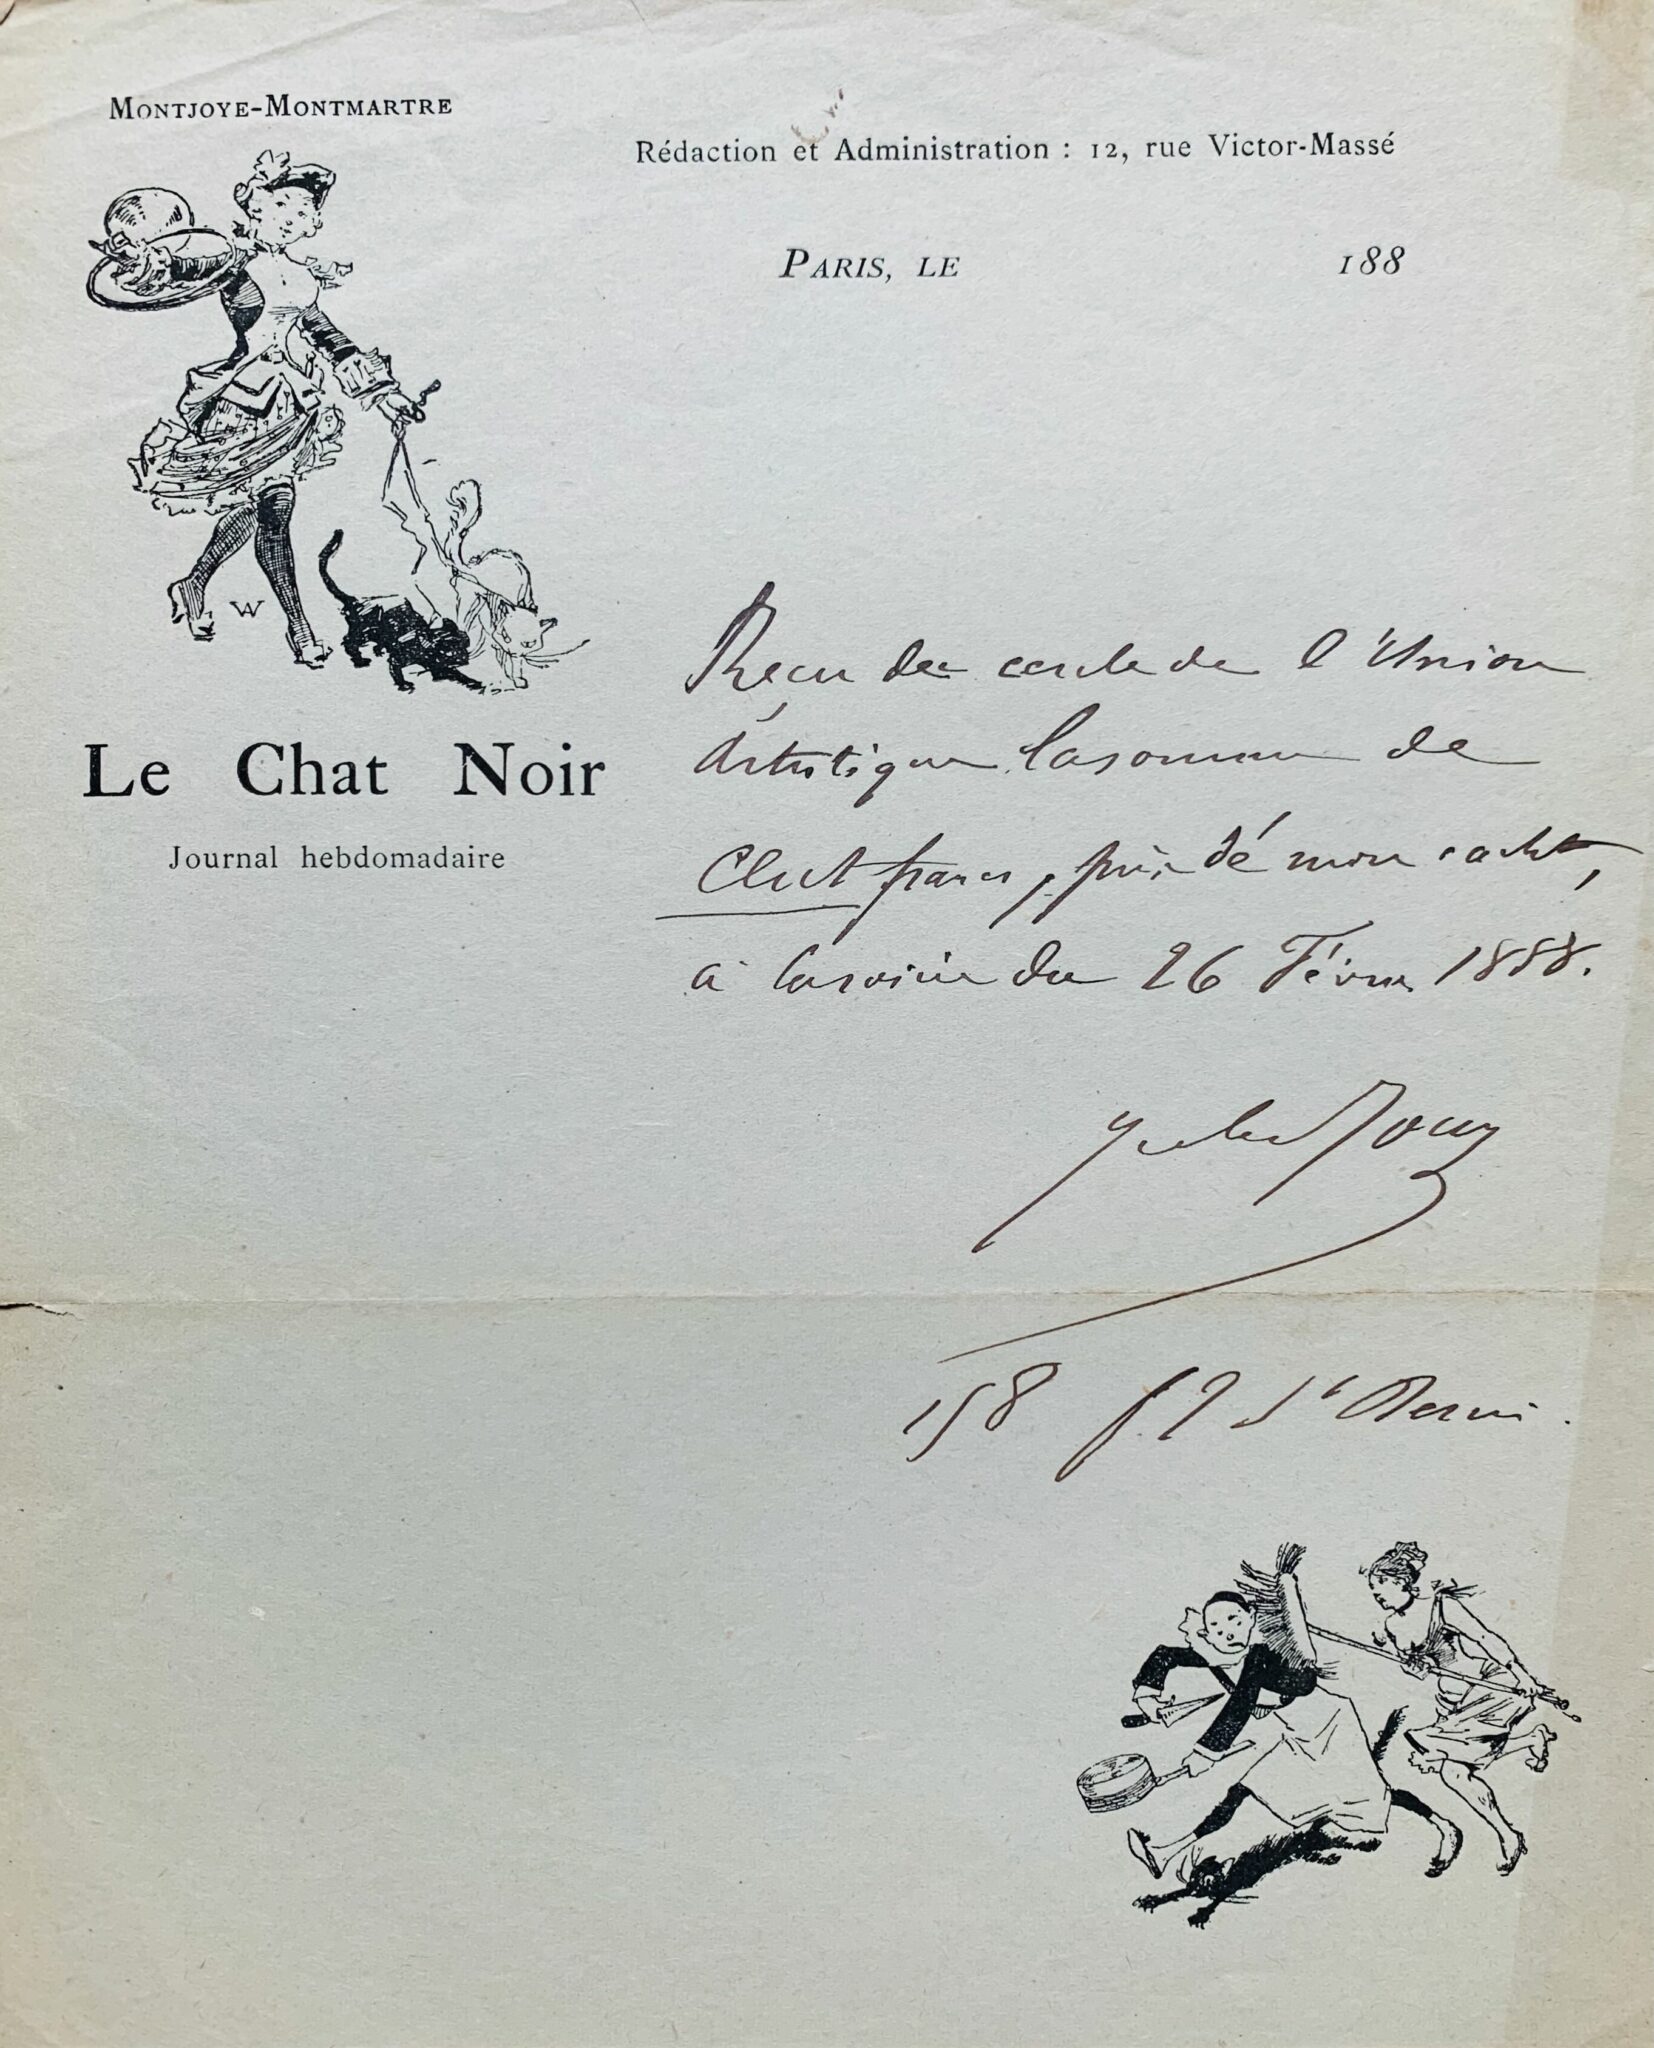 MONTJOYE-MONTMARTRE
Rédaction et Administration : 12, rue Victor-Massé
PARIS, LE 188
W
Le Chat Noir
Journal hebdomadaire
Reçu du cercle de l'Union
Artistique la somme de
Cent francs, prix de mon cachet,
à la soirée du 26 Février 1888.
Jules Jouy
158 f. g St Denis.